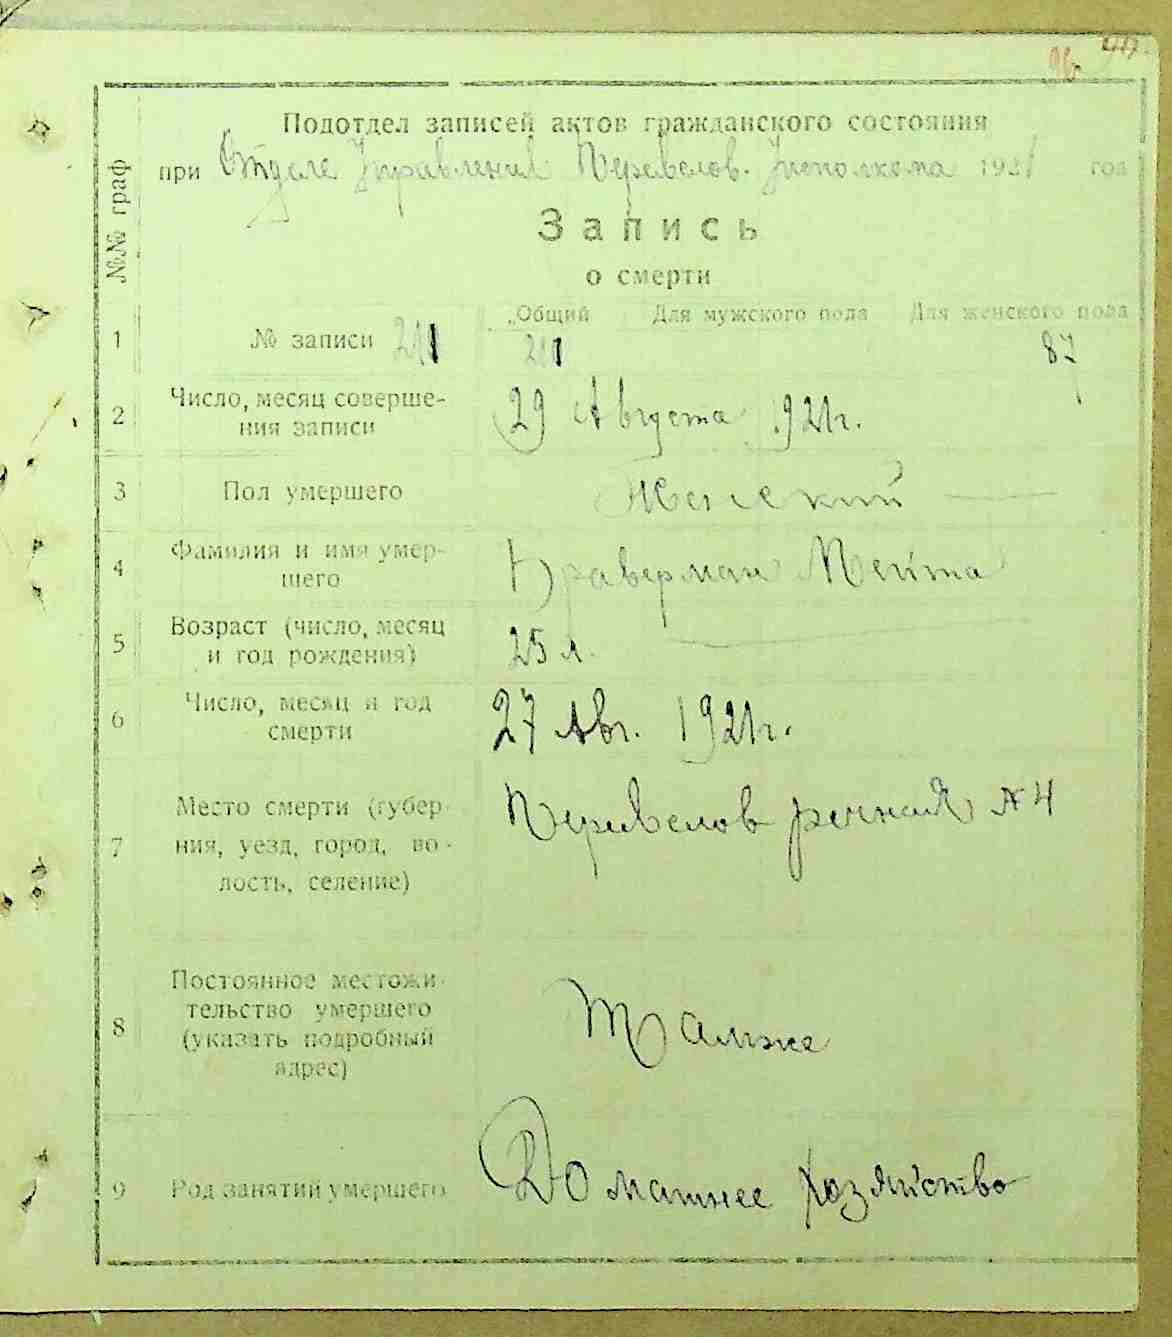 Подотдел записей актов гражданского состояния
при Отделе Управления Перевелов. Исполкома 1921 год
№№ граф
Запись
о смерти
Общий Для мужского пола Для женского пола
1 № записи 211 211 87
2 Число, месяц соверше-
ния записи
29 Августа 1921г.
3 Пол умершего Женский
4 Фамилия и имя умер-
шего
Браверман Мейта
5 Возраст (число, месяц
и год рождения)
25 л.
6 Число, месяц и год
смерти
27 Авг. 1921г.
7 Место смерти (губер-
ния, уезд, город, во-
лость, селение)
Перевелов речная № 4
8 Постоянное местожи-
тельство умершего
(указать подробный
адрес)
Тамже
9 Род занятий умершего Домашнее хозяйство